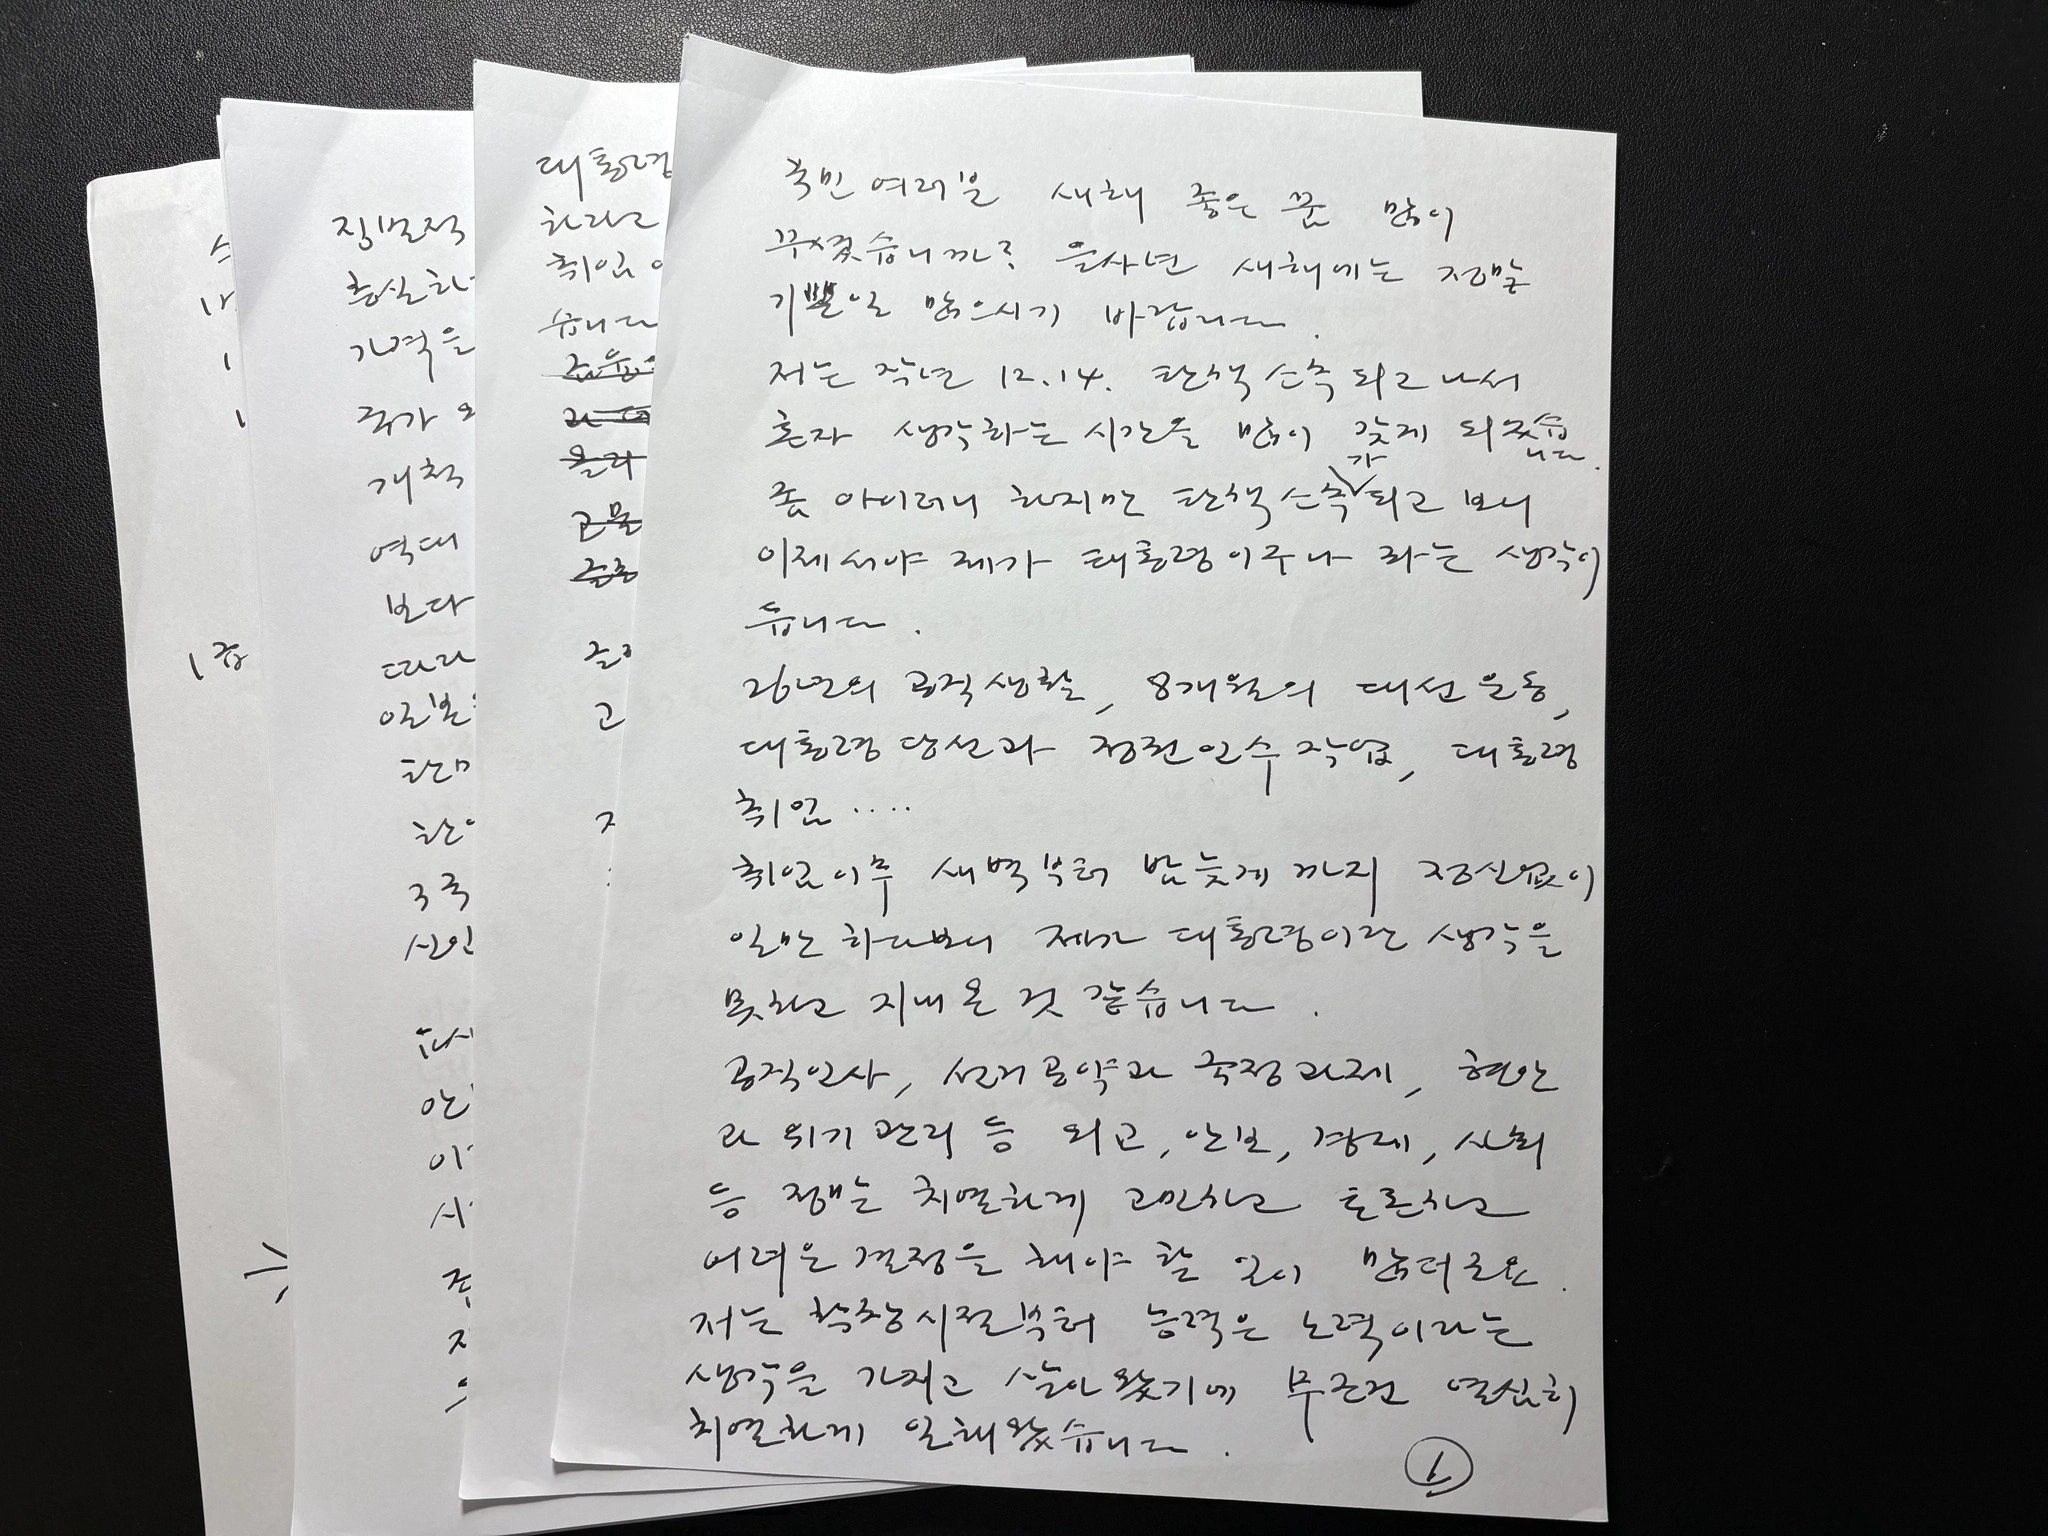 국민 여러분 새해 좋은 꿈 많이
꾸셨습니까? 을사년 새해에는 정말
기쁜일 많으시기 바랍니다.
저는 작년 12.14. 탄핵 소추 되고 나서
혼자 생각하는 시간을 많이 갖게 되었습니다.
좀 아이러니 하지만 탄핵 소추가 되고 보니
이제서야 제가 대통령이구나 라는 생각이
듭니다.
26년의 공직생활, 8개월의 대선 운동,
대통령 당선과 정권 인수 작업, 대통령
취임 ....
취임이후 새벽부터 밤늦게 까지 정신없이
일만 하다보니 제가 대통령이란 생각을
못하고 지내온 것 같습니다.
공직인사, 선거 공약과 국정과제, 현안
과 위기 관리 등 외교, 안보, 경제, 사회
등 정말 치열하게 고민하고 토론하고
어려운 결정을 해야 할 일이 많더군요.
저는 학창시절부터 능력은 노력이라는
생각을 가지고 살아 왔기에 무조건 열심히
치열하게 일해왔습니다.
1
대통령
하라고
취임
습니다
올리
고물
고
집별적
충실하
가격을
국가
개척
역대
보다
따라
일본
한미
3국
시인